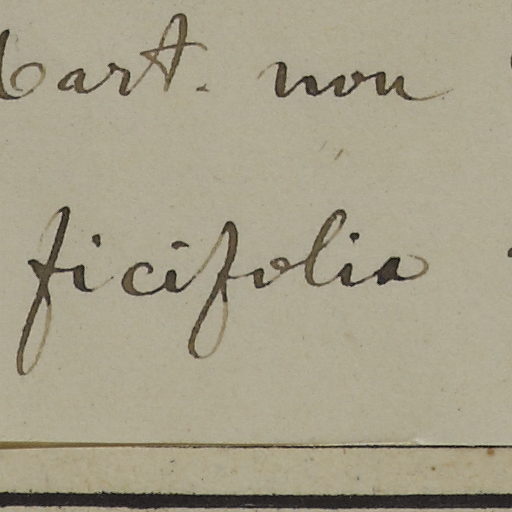 Mart. non
ficifolia